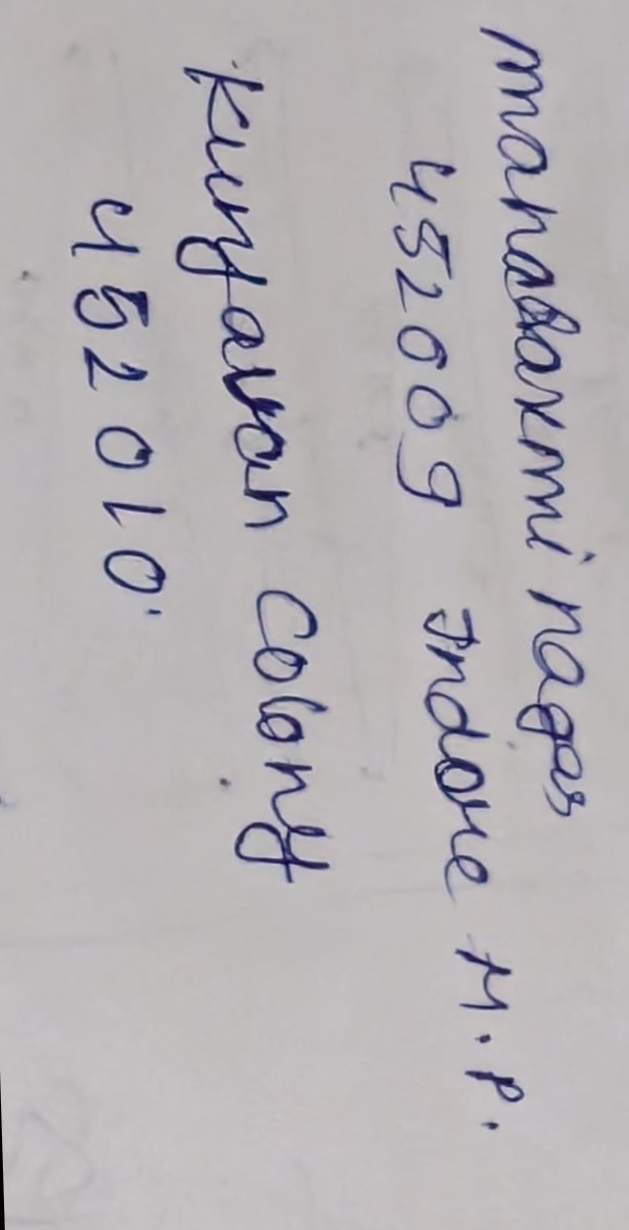 mahalaxmi nagar
452009 Indore M.P.
Kunjavan Colony
452010